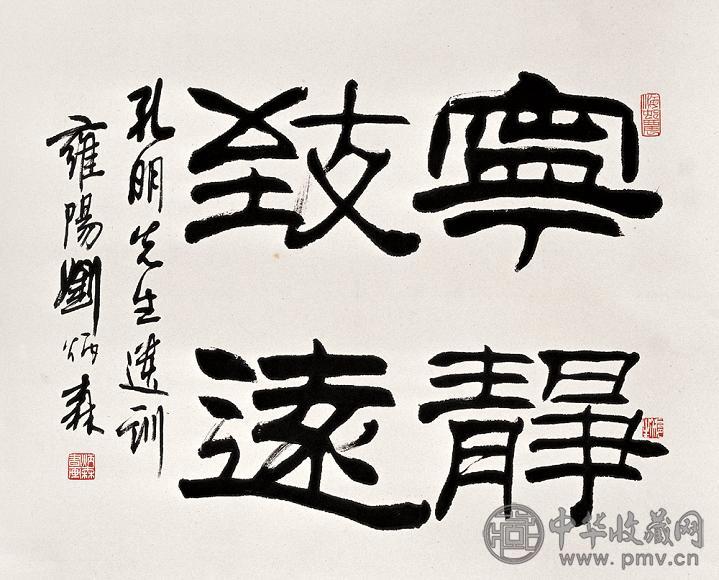 寧靜
致遠
孔明先生遺訓
雍陽劉炳森
中华收藏网
www.pmv.cn